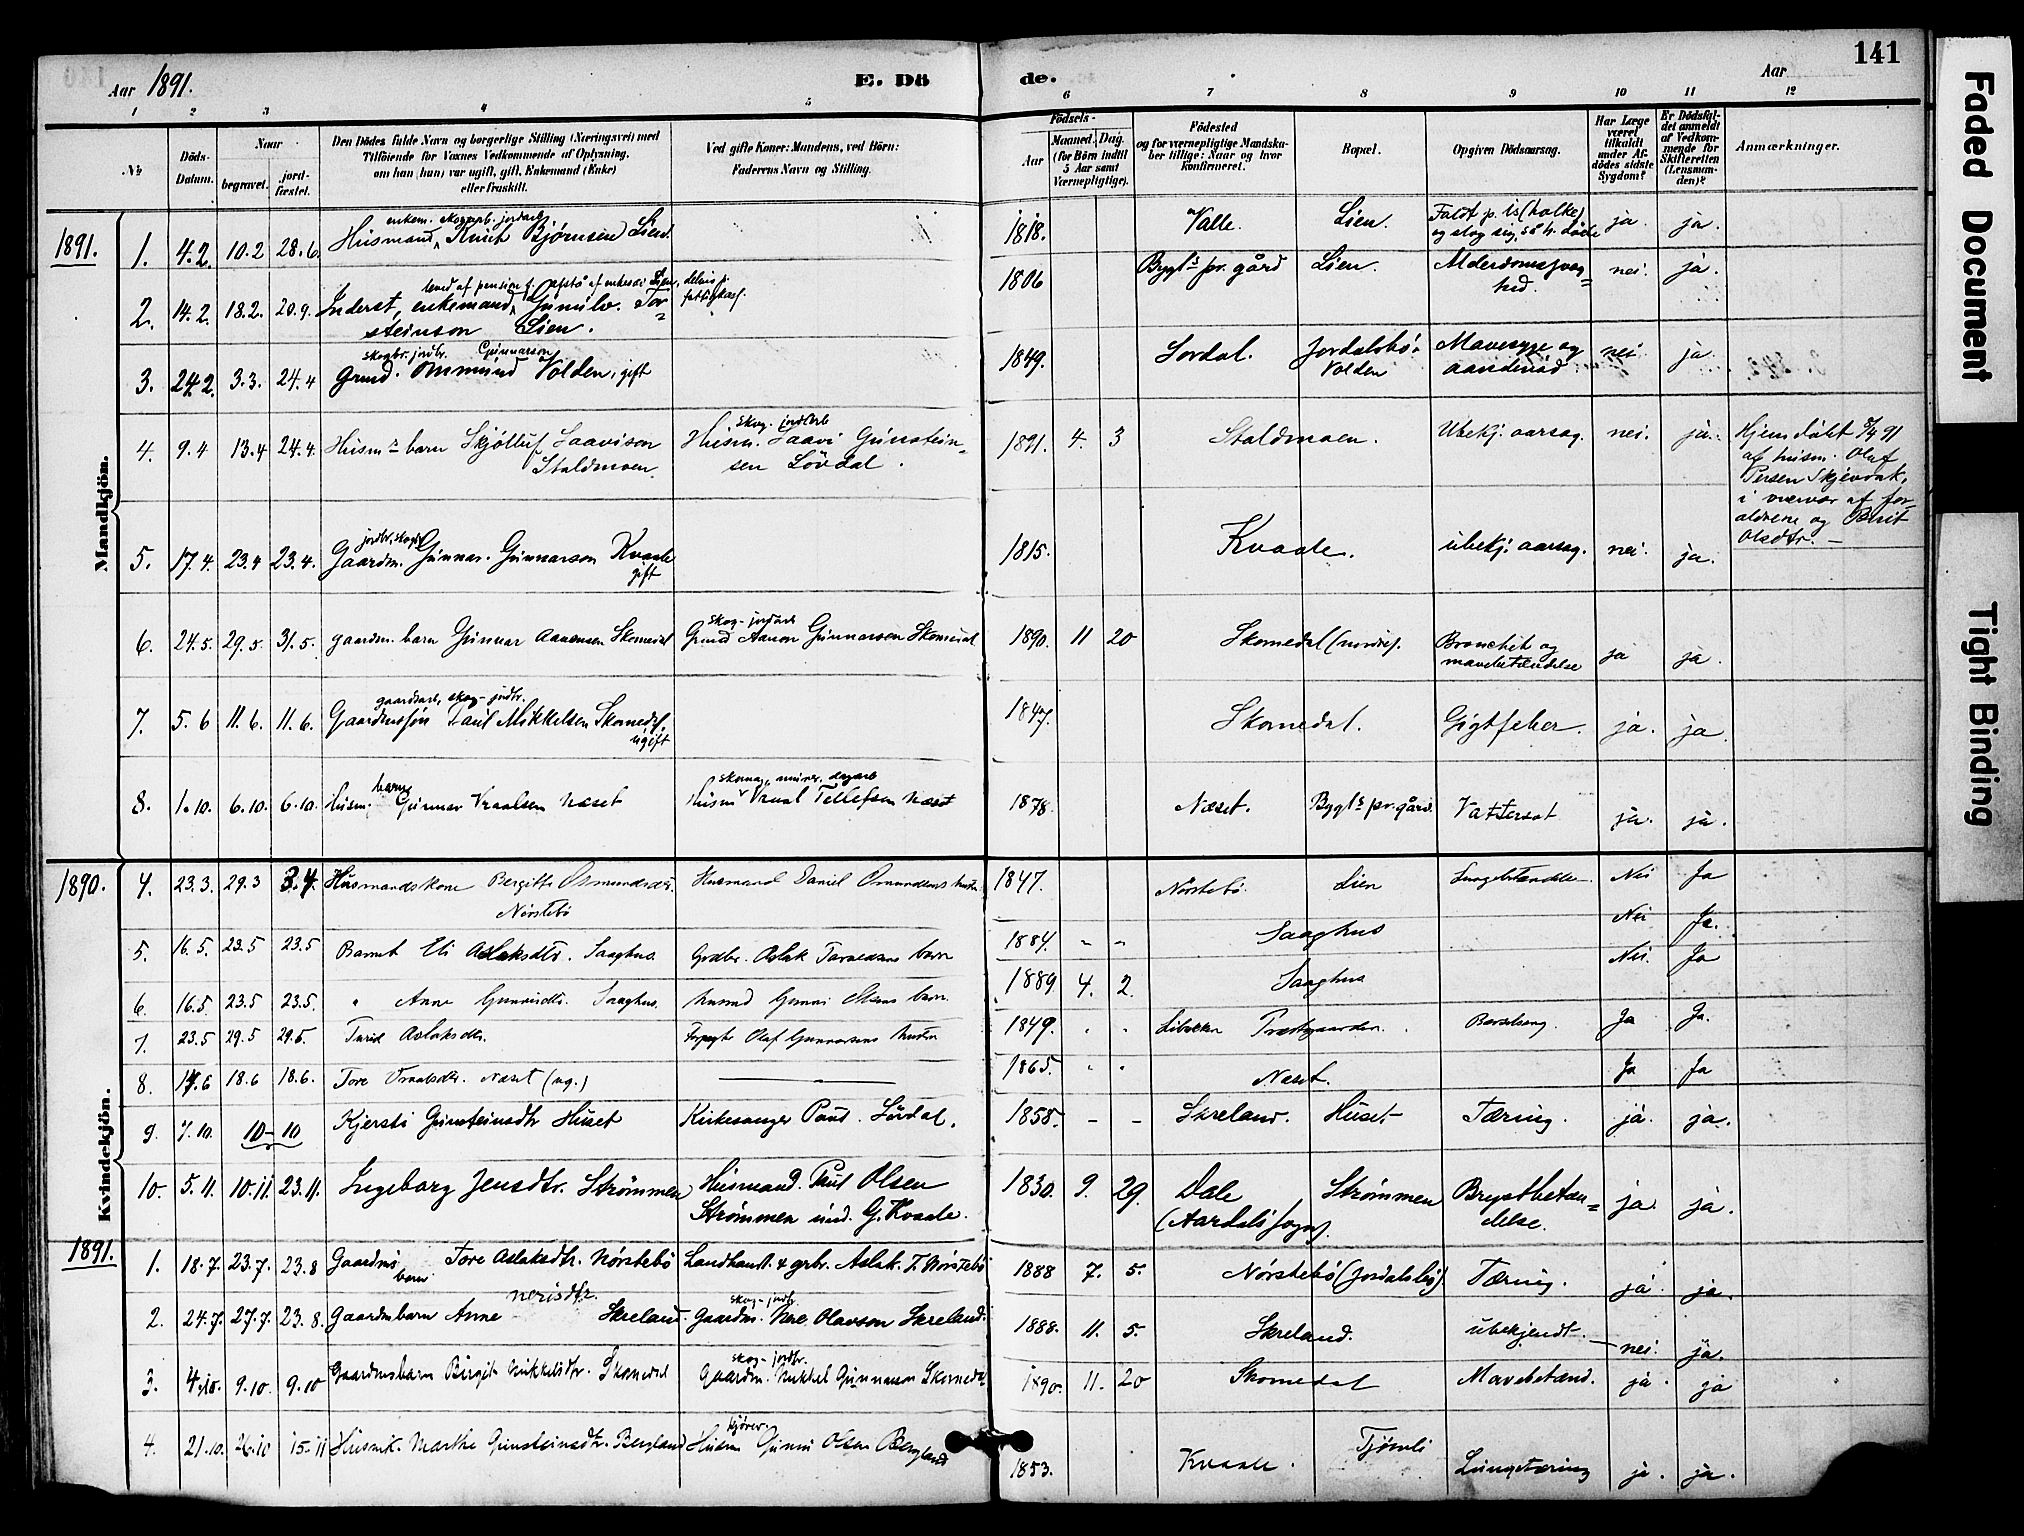 Aar 1891.
E. Dö
de.
Aar
141
1 2 3 4 5 6 7 8 9 10 11 12
No
Döds-Datum.
Naar
begravet.
jord-fæstet.
Den Dödes fulde Navn og borgerlige Stilling (Næringsvei) med
Tilföiende for Voxnes Vedkommende af Oplysning,
om han (hun) var ugift, gift, Enkemand (Enke)
eller fraskilt.
Ved gifte Koner: Mandens, ved Börn:
Faderens Navn og Stilling.
Födsels-
Aar
Maaned. Dag.
(for Börn indtil
5 Aar samt
Værnepligtige).
Födested
og for værnepligtige Mandska-
ber tillige: Naar og hvor
Konfirmeret.
Bopæl.
Opgiven Dödsaarsag.
Har Læge
været
tilkaldt
under Af-
dödes sidste
Sygdom?
Er Dödsfal-
det anmeldt
af Vedkom-
mende for
Skifteretten
(Lensman-
den)?
Anmærkninger.
Mandkjön.
1891.
enkem. skogarb. jordarb.
1. 4.2. 10.2 28.6. Husmand, Knut Bjørnsen Lien. 1818. Valle. Lien. Faldt p. is (holke) ja. ja.
og slog sig, så h. døde
leved af pension
2. 14.2. 18.2. 20.9. Inderst, enkemand, Gunulv. Tor- 1806 Bygl's pr. gård Lien. Alderdomssvag- nei. ja.
steinson Lien. hed.
skogbr. jordbr. Gunnarson
3. 24.2. 3.3. 24.4 Grmd. Aasmund Volden, gift 1849. Lordal. Jordalsbö. Mavesyge og nei. ja.
Volden aandenöd.
skog- jordarb
4. 9.4 13.4 24.4. Husm's barn Skjølluf Saavison Husm. Saavi Gunstein- 1891. 4. 3 Staldmoen. Ubekj. aarsag. nei. ja. Hjemdøbt 8/4 91
Staldmoen sen Lövdal. af husm. Oluf
Persen Skjevrak,
i nærvær af for-
ældrene og Berit
Olsdtr. —
jordbr. skogbr
5. 17.4. 23.4 23.4. Gaardm. Gunnar. Gunnarson Kvaale 1815. Kvaale. ubekj. aarsag. nei. ja.
gift
skog- jordarb
6. 24.5. 29.5. 31.5. gaardm. barn Gunnar Aanensen Skomedal Grmd Aanon Gunnarson Skomedal 1890. 11 20 Skomedal (nordre). Bronchit og ja ja.
mavebetændelse
gaardsarb, skog- jordbr.
7. 5.6 11.6. 11.6. Gaardmssøn Taul Mikkelsen Skomedal, 1847. Skomedal. Gigtfeber. ja. ja.
ugift
barn
8. 1.10. 6.10. 6.10. Husm. Gunnar Vraalsen Næset Husm Vraal Tellefsen Næset 1878. Næset. Bygl's pr. gård. Vattersot ja. ja.
Kvindekjön.
1890.
4. 23.3. 29.3 3.4. Husmandskone Bergitte Osmundsdtr. Husmand Daniel Osmundsens hustru 1847. Nörstebö. Lien Lungebetændelse Nei Ja
Nörstebö
5. 16.5 23.5 23.5 Barnet Eli Aslaksdtr. Saaghus. Grdbr. Aslak Taraldsens barn 1884. - - Saaghus Nei Ja.
6. 16.5 23.5 23.5. " Anne Gunnisdtr. Saaghus. Husmd Gunni Olsens barn. 1889 4. 2. Saaghus Nei. Ja
7. 23.5 29.5 29.5. Turid Aslaksdtr. Forpagter Olaf Gunnarsens hustru 1849. " " Præstgaarden. Barselseng. Ja Ja.
8. 14.6 18.6 18.6. Tore Vraalsdtr. Næset (ug.) 1865. " " Næset. Ja Ja
9. 7.10. 10-10 Kjersti Gunsteinsdtr Huset Kirkesanger Poul. Lövdal. 1858. - - Skreland. Huset Tæring. ja. ja.
10. 5.11. 10.11. 23.11. Ingeborg Jensdtr. Strømmen Husmand. Paul Olsen 1830. 9. 29. Dale Strømmen Brystbetæn- ja. ja.
Strømmen und. G. Kvaale. (Aardals sogn). delse.
1891.
1. 18.7. 23.7. 23.8 Gaardms barn Tore Aslaksdtr. Nörstebö Landhand. & grbr. Aslak T. Nörstebö 1888 7. 5. Nörstebö (Jordalsbö) Tæring. ja. ja.
nerisdtr. skog- jordbr.
2. 24.7. 27.7. 23.8. Gaardmbarn Anne Skreland. Gaardm. Nere Olavson Skreland. 1888. 11. 5. Skreland. ubekjendt. — nei. ja.
skog- jordbr.
3. 4.10. 9.10. 9.10 Gaardmsbarn Birgit Mikkelsdtr. Skomedal Gaardm. Mikkel Gunnarson Skomedal 1890. 11. 20 Skomedal Mavebetænd. ja. ja
kjörer.
4. 21.10. 26.10 15.11 Husmk. Marthe Gunsteinsdtr. Bergland Husm Gunni Olsen Bergland 1853. Kvaale. Tjömli Lungetæring ja. ja.
Faded Document
Tight Binding